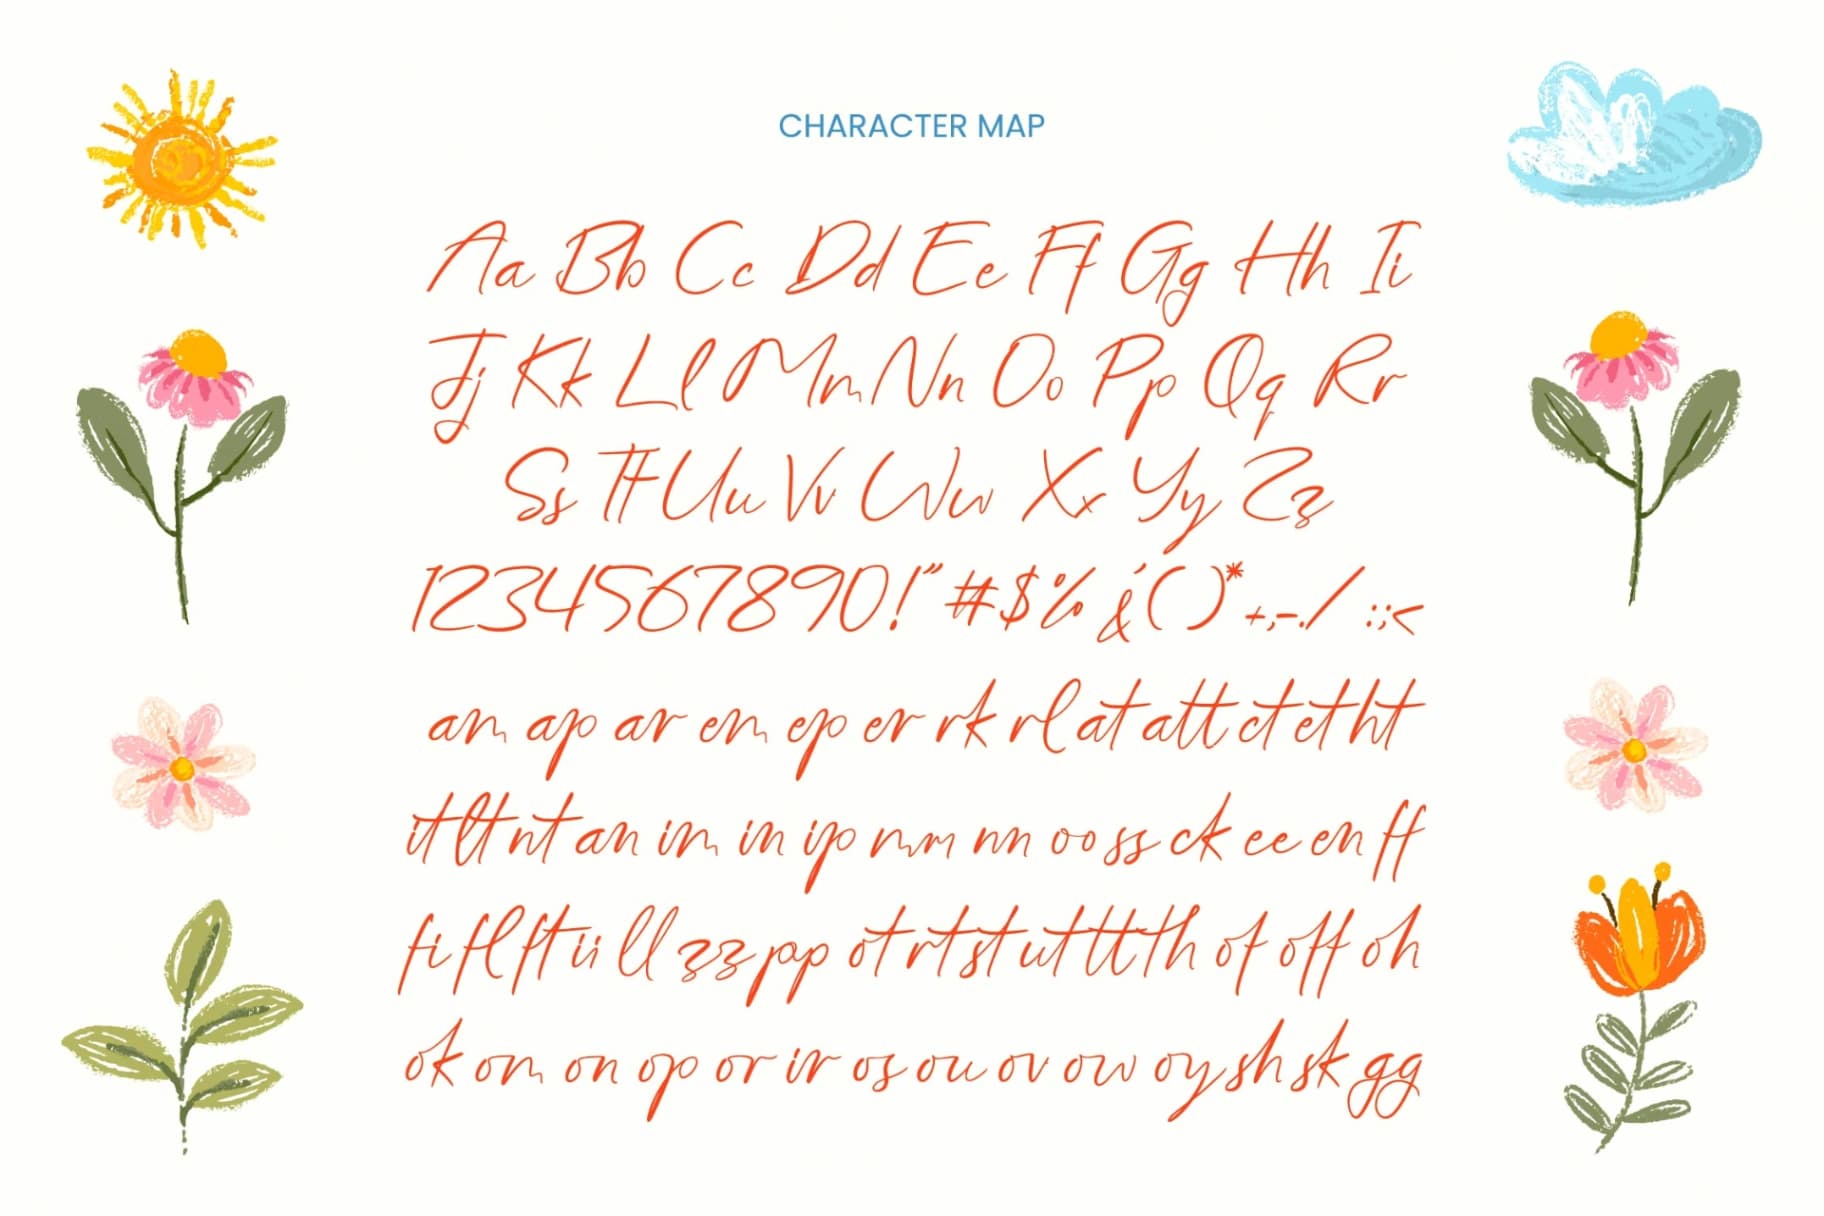 CHARACTER MAP
Aa Bb Cc Dd Ee Ff Gg Hh Ii
Jj Kk Ll Mm Nn Oo Pp Qq Rr
Ss Tt Uu Vv Ww Xx Yy Zz
1234567890!"#$%&'()*+,-./:;<
am ap ar em ep er rk rl at att ct et ht
it lt nt an im in ip mm nn oo ss ck ee en ff
fi fl ft ii ll zz pp ot rt st ut tt th of off oh
ok om on op or ir os ou ov ow oy sh sk gg